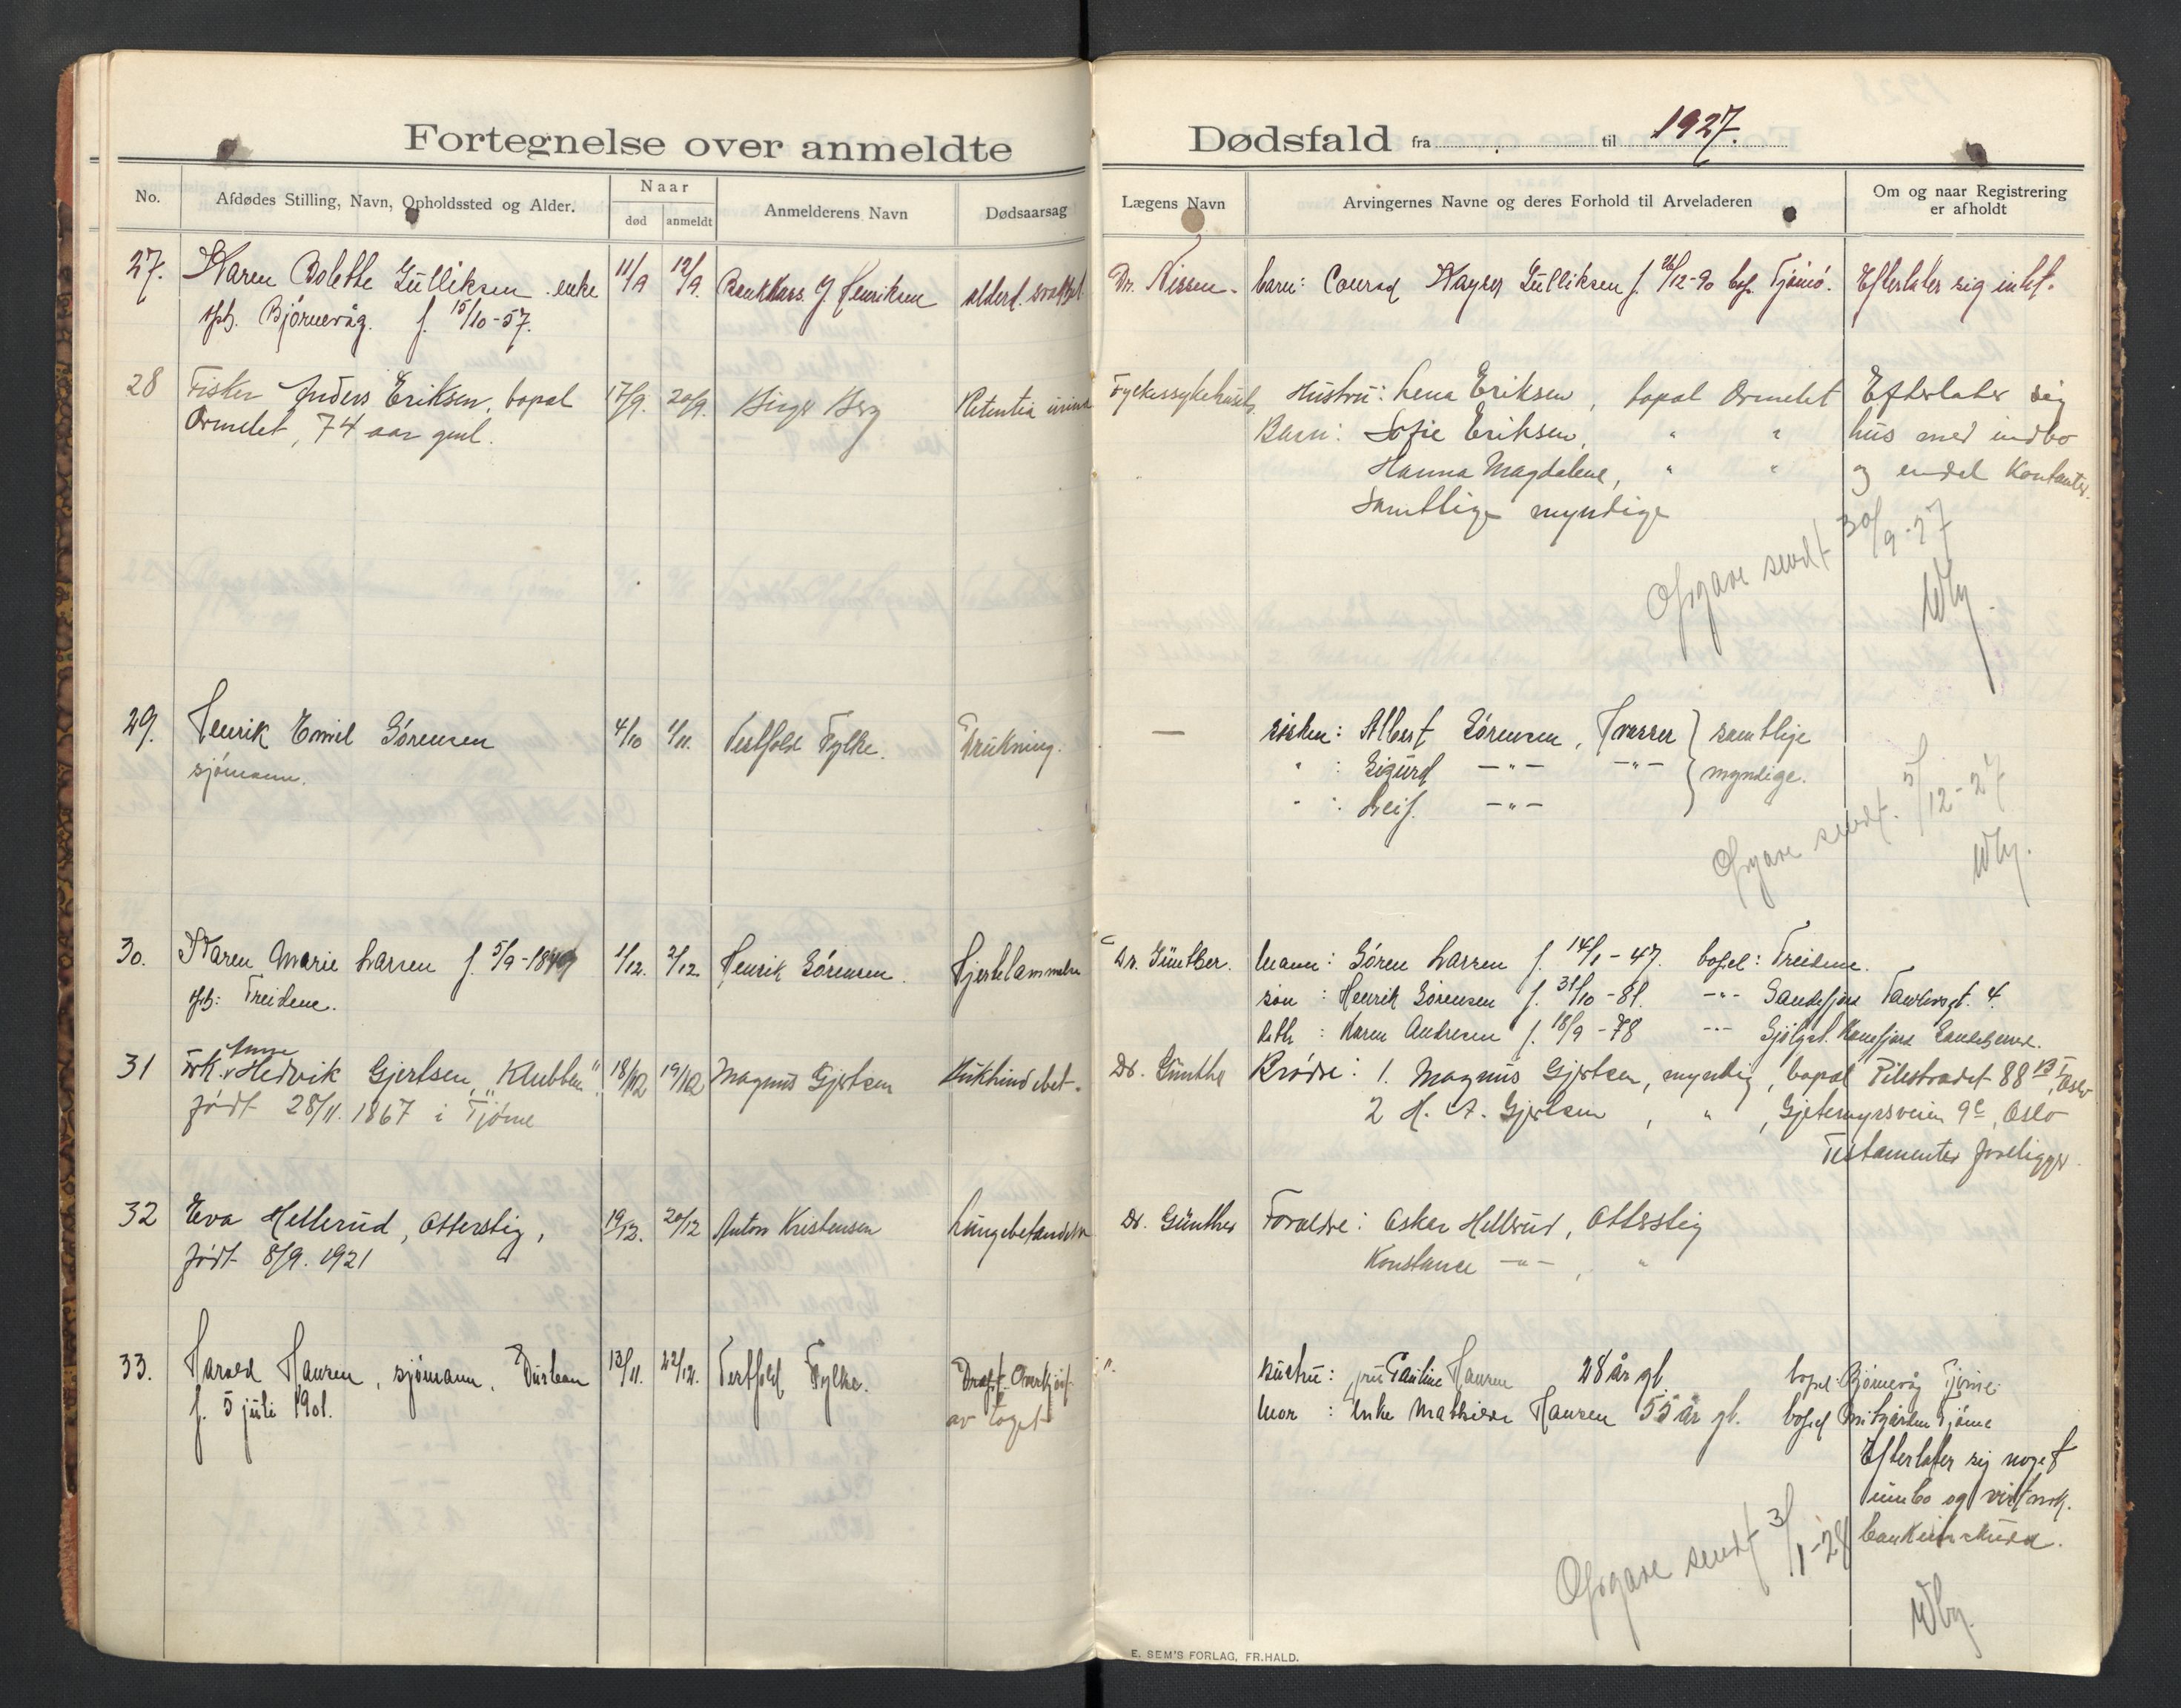 Fortegnelse over anmeldte Dødsfald fra til 1927.
No. Afdødes Stilling, Navn, Opholdssted og Alder. Naar død anmeldt Anmelderens Navn Dødsaarsag Lægens Navn Arvingernes Navne og deres Forhold til Arveladeren Om og naar Registrering er afholdt
27. Karen Bolette Gulliksen enke 11/9 12/9. J. Henriksen Dr. Nissen. barn: Conrad Kayser Gulliksen f. 26/12-90 Tjømø. Efterlater sig intet.
Bjørnevåg. f. 15/10-57.
28 Fisker Anders Eriksen, bopæl 17/9. 20/9. Birger Berg Retentia urina Fylkessykehuset Hustru: Lena Eriksen, bopæl Ormelet Efterlater sig
Ormelet, 74 aar gml. Barn: Sofie Eriksen, " " hus med indbo
Hanna Magdalene, " " og endel Kontanter.
Samtlige myndige
Opgave sendt 30/9-27
29. Henrik Emil Sørensen 4/10 Vestfold Fylke. Drukning. — søsken: Albert Sørensen, Hvasser } samtlige
sjømann. " : Sigurd —"— —"— } myndige.
" : Leif. —"—
Opgave sendt. 5/12-27
30. Karen Marie Larsen f. 5/9-1849 1/12. 2/12 Henrik Sørensen. Hjertelammelse Dr. Günther. Mann: Søren Larsen f. 14/1-47. bopel: Treidene.
Treidene. søn : Henrik Sørensen f. 31/10-81. —"— Sandefjord 4.
Karen Andresen f. 18/9-78 —"—
31 Frk. Anne Hedvik Gjertsen, "Klubben" 18/12 19/12 Magnus Gjertsen Dr. Günther Brødre: 1. Magnus Gjertsen, myndig, bopæl Pilestrædet 88 Oslo
født 28/11. 1867 i Tjøme 2 H. A. Gjertsen, " , Gjetemyrsveien 9c, Oslo
Testamenter foreligger.
32 Eva Hellerud, Otterstig, 19/12. 20/12 Anton Kristensen Lungebetændelse Dr. Günther Forældre: Oskar Hellerud, Otterstig
født 8/9. 1921 Konstance —"— , "
33. Harald Hansen, sjømann, 13/11. 22/12. Vestfold Fylke. Dræpt. Overkjørt ". hustru: fru Pauline Hansen 28 år gl. bopel: Bjørnevåg Tjøme
f. 5 juli 1901. av toget Mor : enke Mathilde Hansen 55 år gl. bopel Tjøme
Efterlater sig noget
innbo og
Opgave sendt 3/1-28
E. SEM'S FORLAG, FR.HALD.